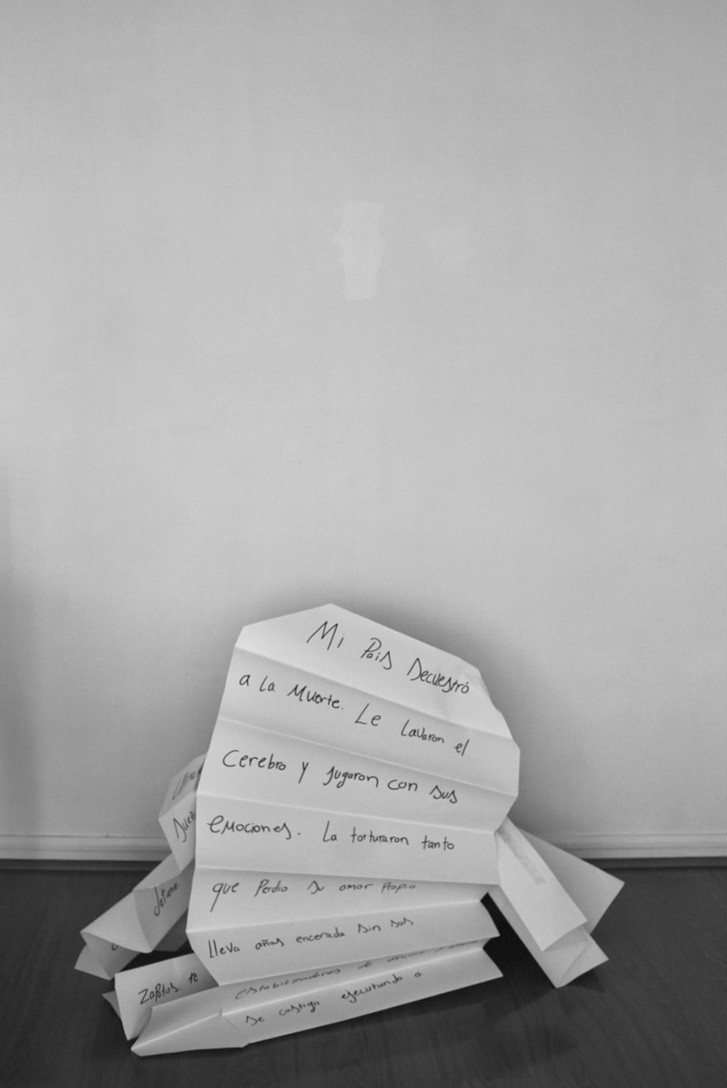 Mi País Secuestró
a la Muerte. Le lavaron el
Cerebro y jugaron con sus
emociones. La torturaron tanto
que Perdio su amor Propio
lleva años encerrada sin sus
estabilizadores de
se castiga ejecutando a
Zapatos. te